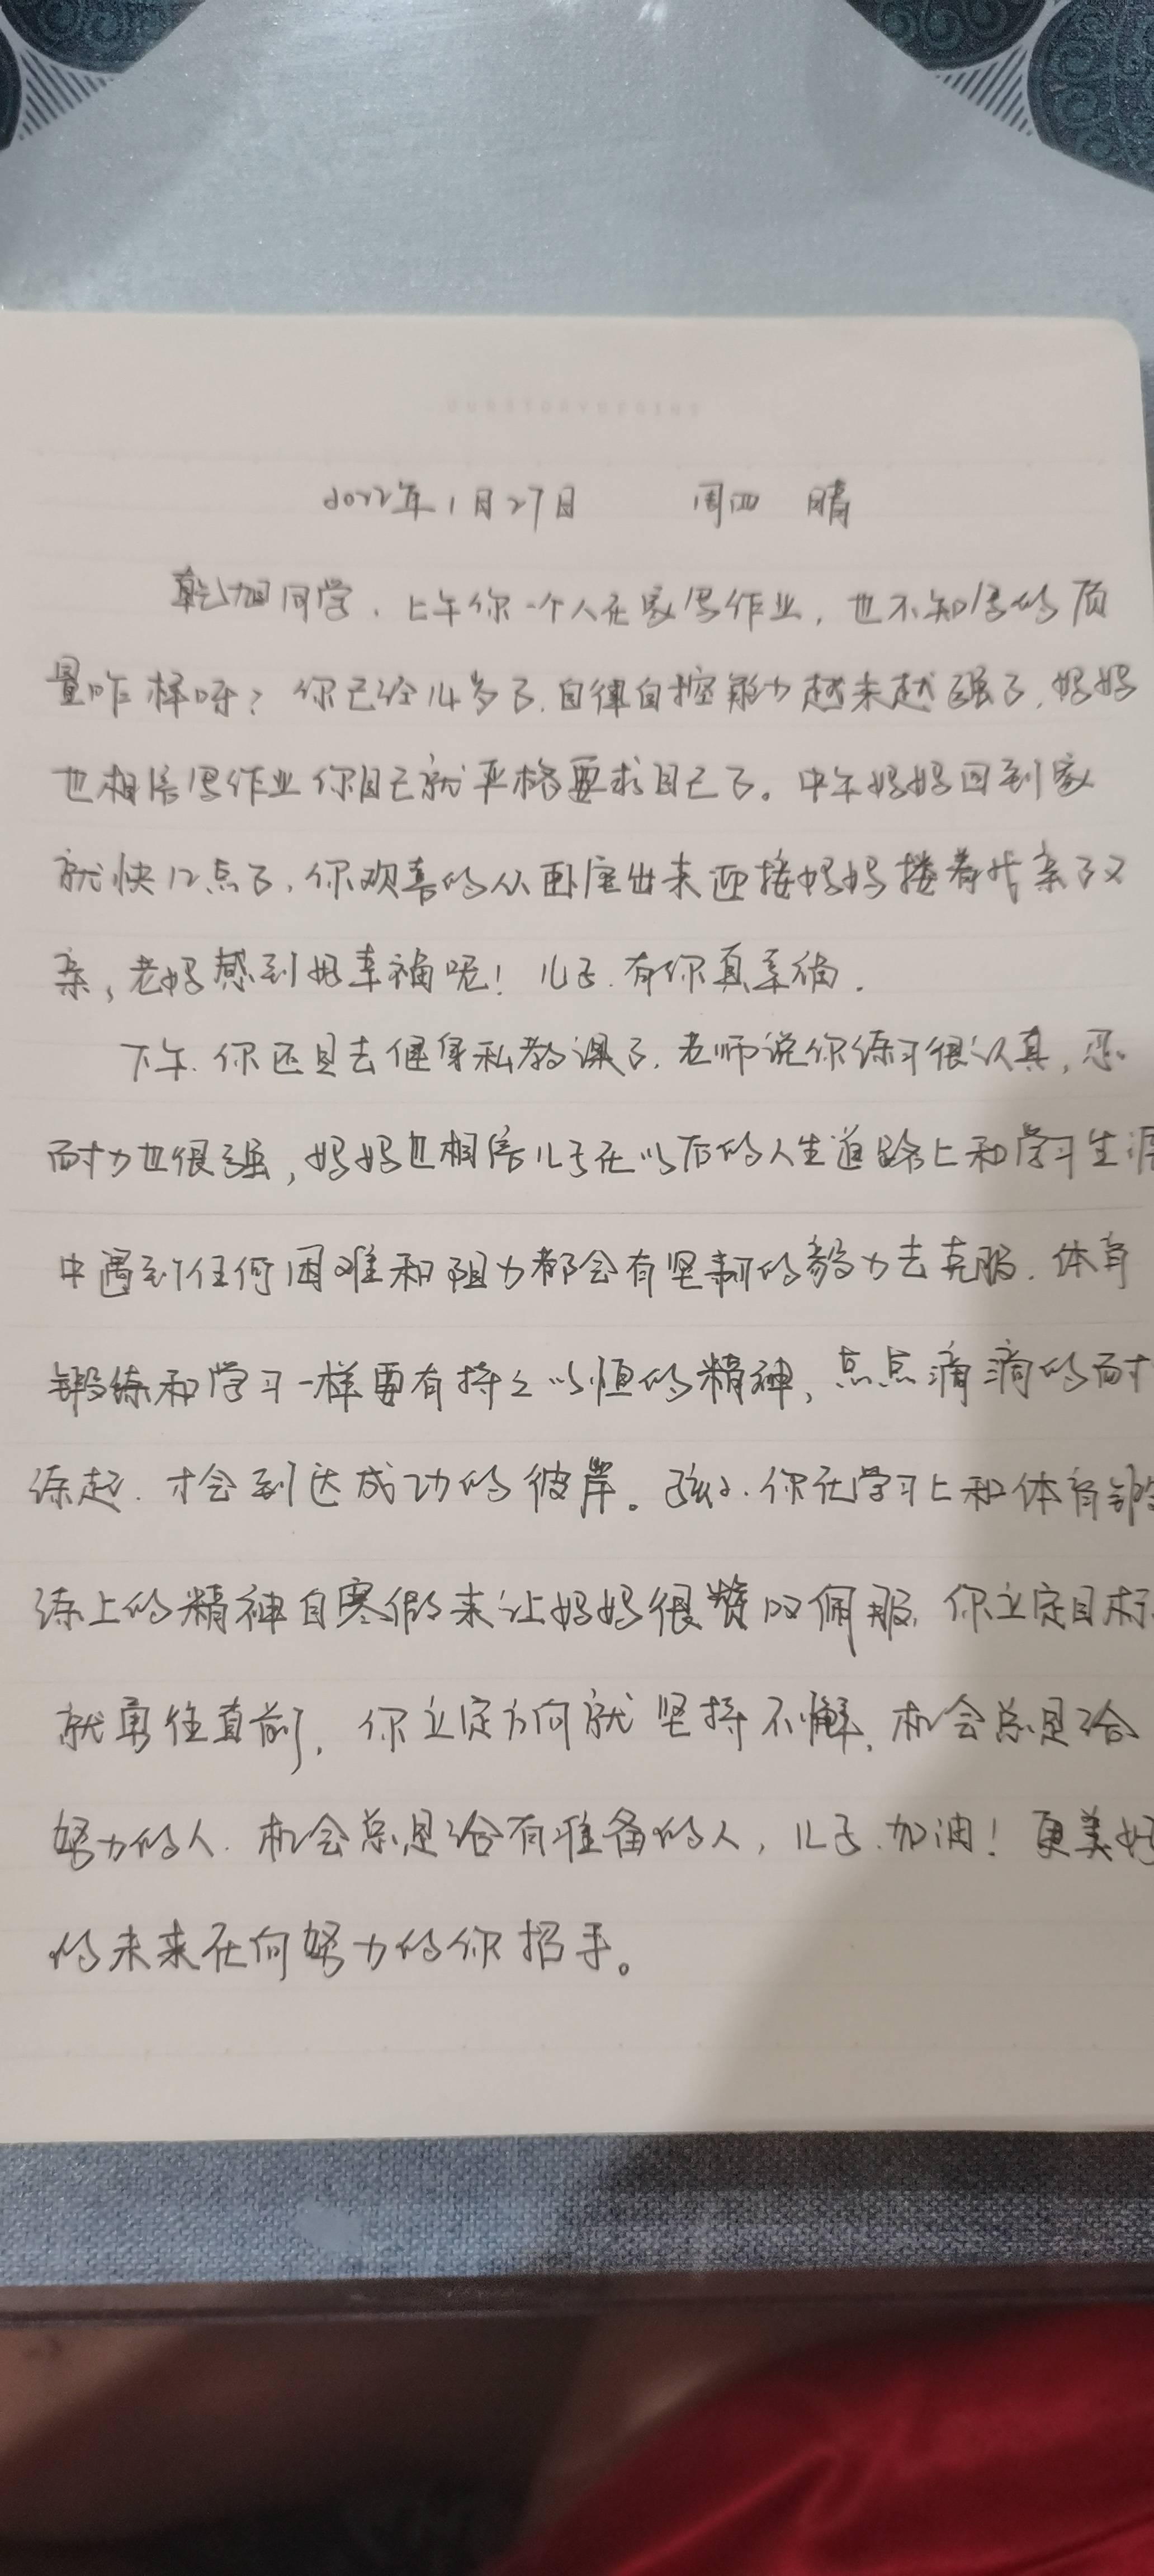 2022年1月27日 周四 晴
乾旭同学、上午你一个人在家写作业，也不知写的质
量咋样呀？你已经14岁了.自律自控能力越来越强了.妈妈
也相信写作业你自己就严格要求自己了。中午妈妈回到家
就快12点了,你欢喜的从卧室出来迎接妈妈搂着我亲了又
亲,老妈感到好幸福呢！儿子.有你真幸福.
下午.你还是去健身私教课了.老师说你练习很认真,忍
耐力也很强,妈妈也相信儿子在以后的人生道路上和学习生涯
中遇到任何困难和阻力都会有坚韧的毅力去克服.体育
锻练和学习一样要有持之以恒的精神,点点滴滴的耐
练起.才会到达成功的彼岸。孩子.你在学习上和体育锻
练上的精神自寒假来让妈妈很赞叹佩服.你立定目标
就勇往直前,你立定方向就坚持不懈.机会总是给
努力的人.机会总是给有准备的人,儿子.加油！更美好
的未来在向努力的你招手。